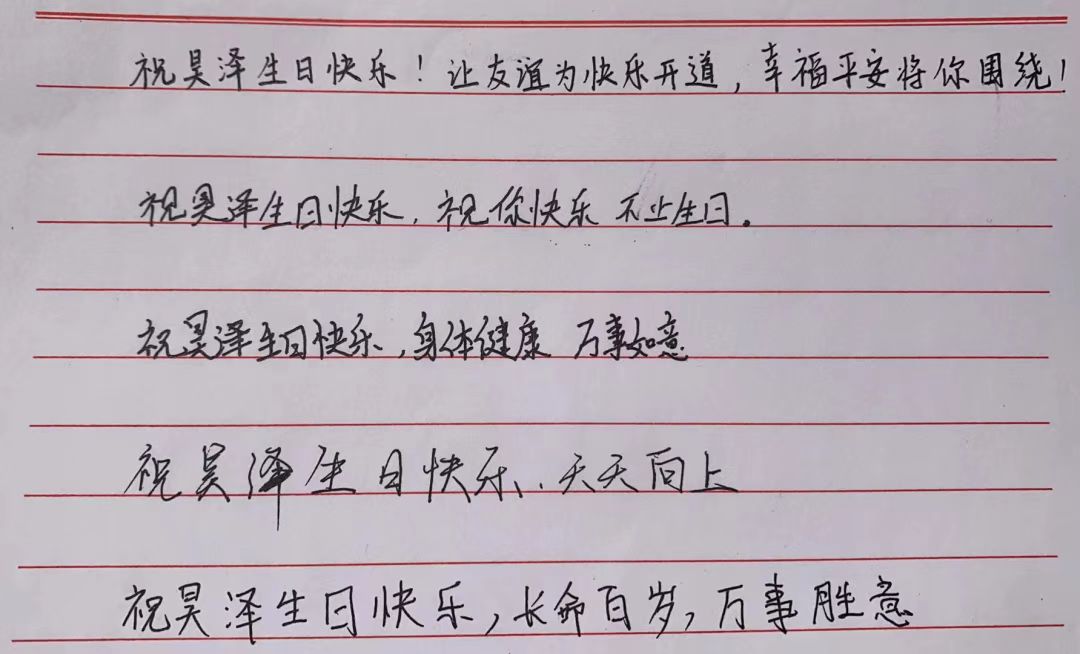 祝昊泽生日快乐！让友谊为快乐开道，幸福平安将你围绕！
祝昊泽生日快乐，祝你快乐 不止生日。
祝昊泽生日快乐，身体健康 万事如意
祝昊泽生日快乐、天天向上
祝昊泽生日快乐，长命百岁，万事胜意